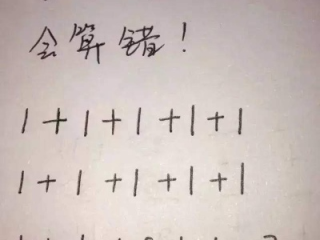 会算错！
1+1+1+1+1
1+1+1+1+1